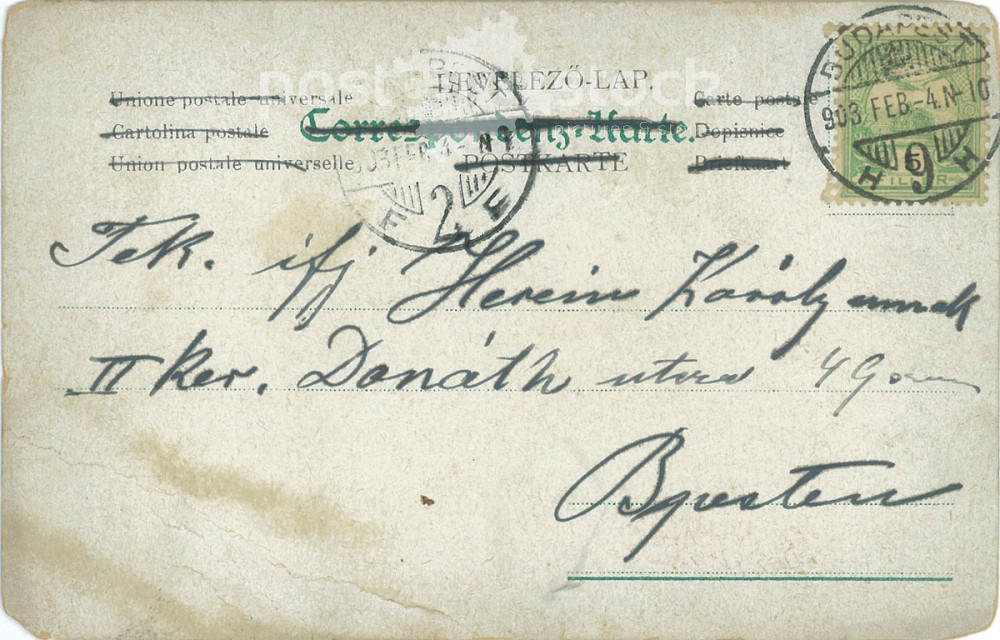 LEVELEZŐ-LAP.
Unione postale universale
Carte postale
Cartolina postale
Correspondenz-Karte.
Dopisnice
Union postale universelle,
POSTKARTE
Briefkaart
BUDAPEST
903 FEB-4.N-10
9
5
FILLÉR
2
Tek. ifj Herein Károly urnak
II ker. Donáth utca 49
Bpesten